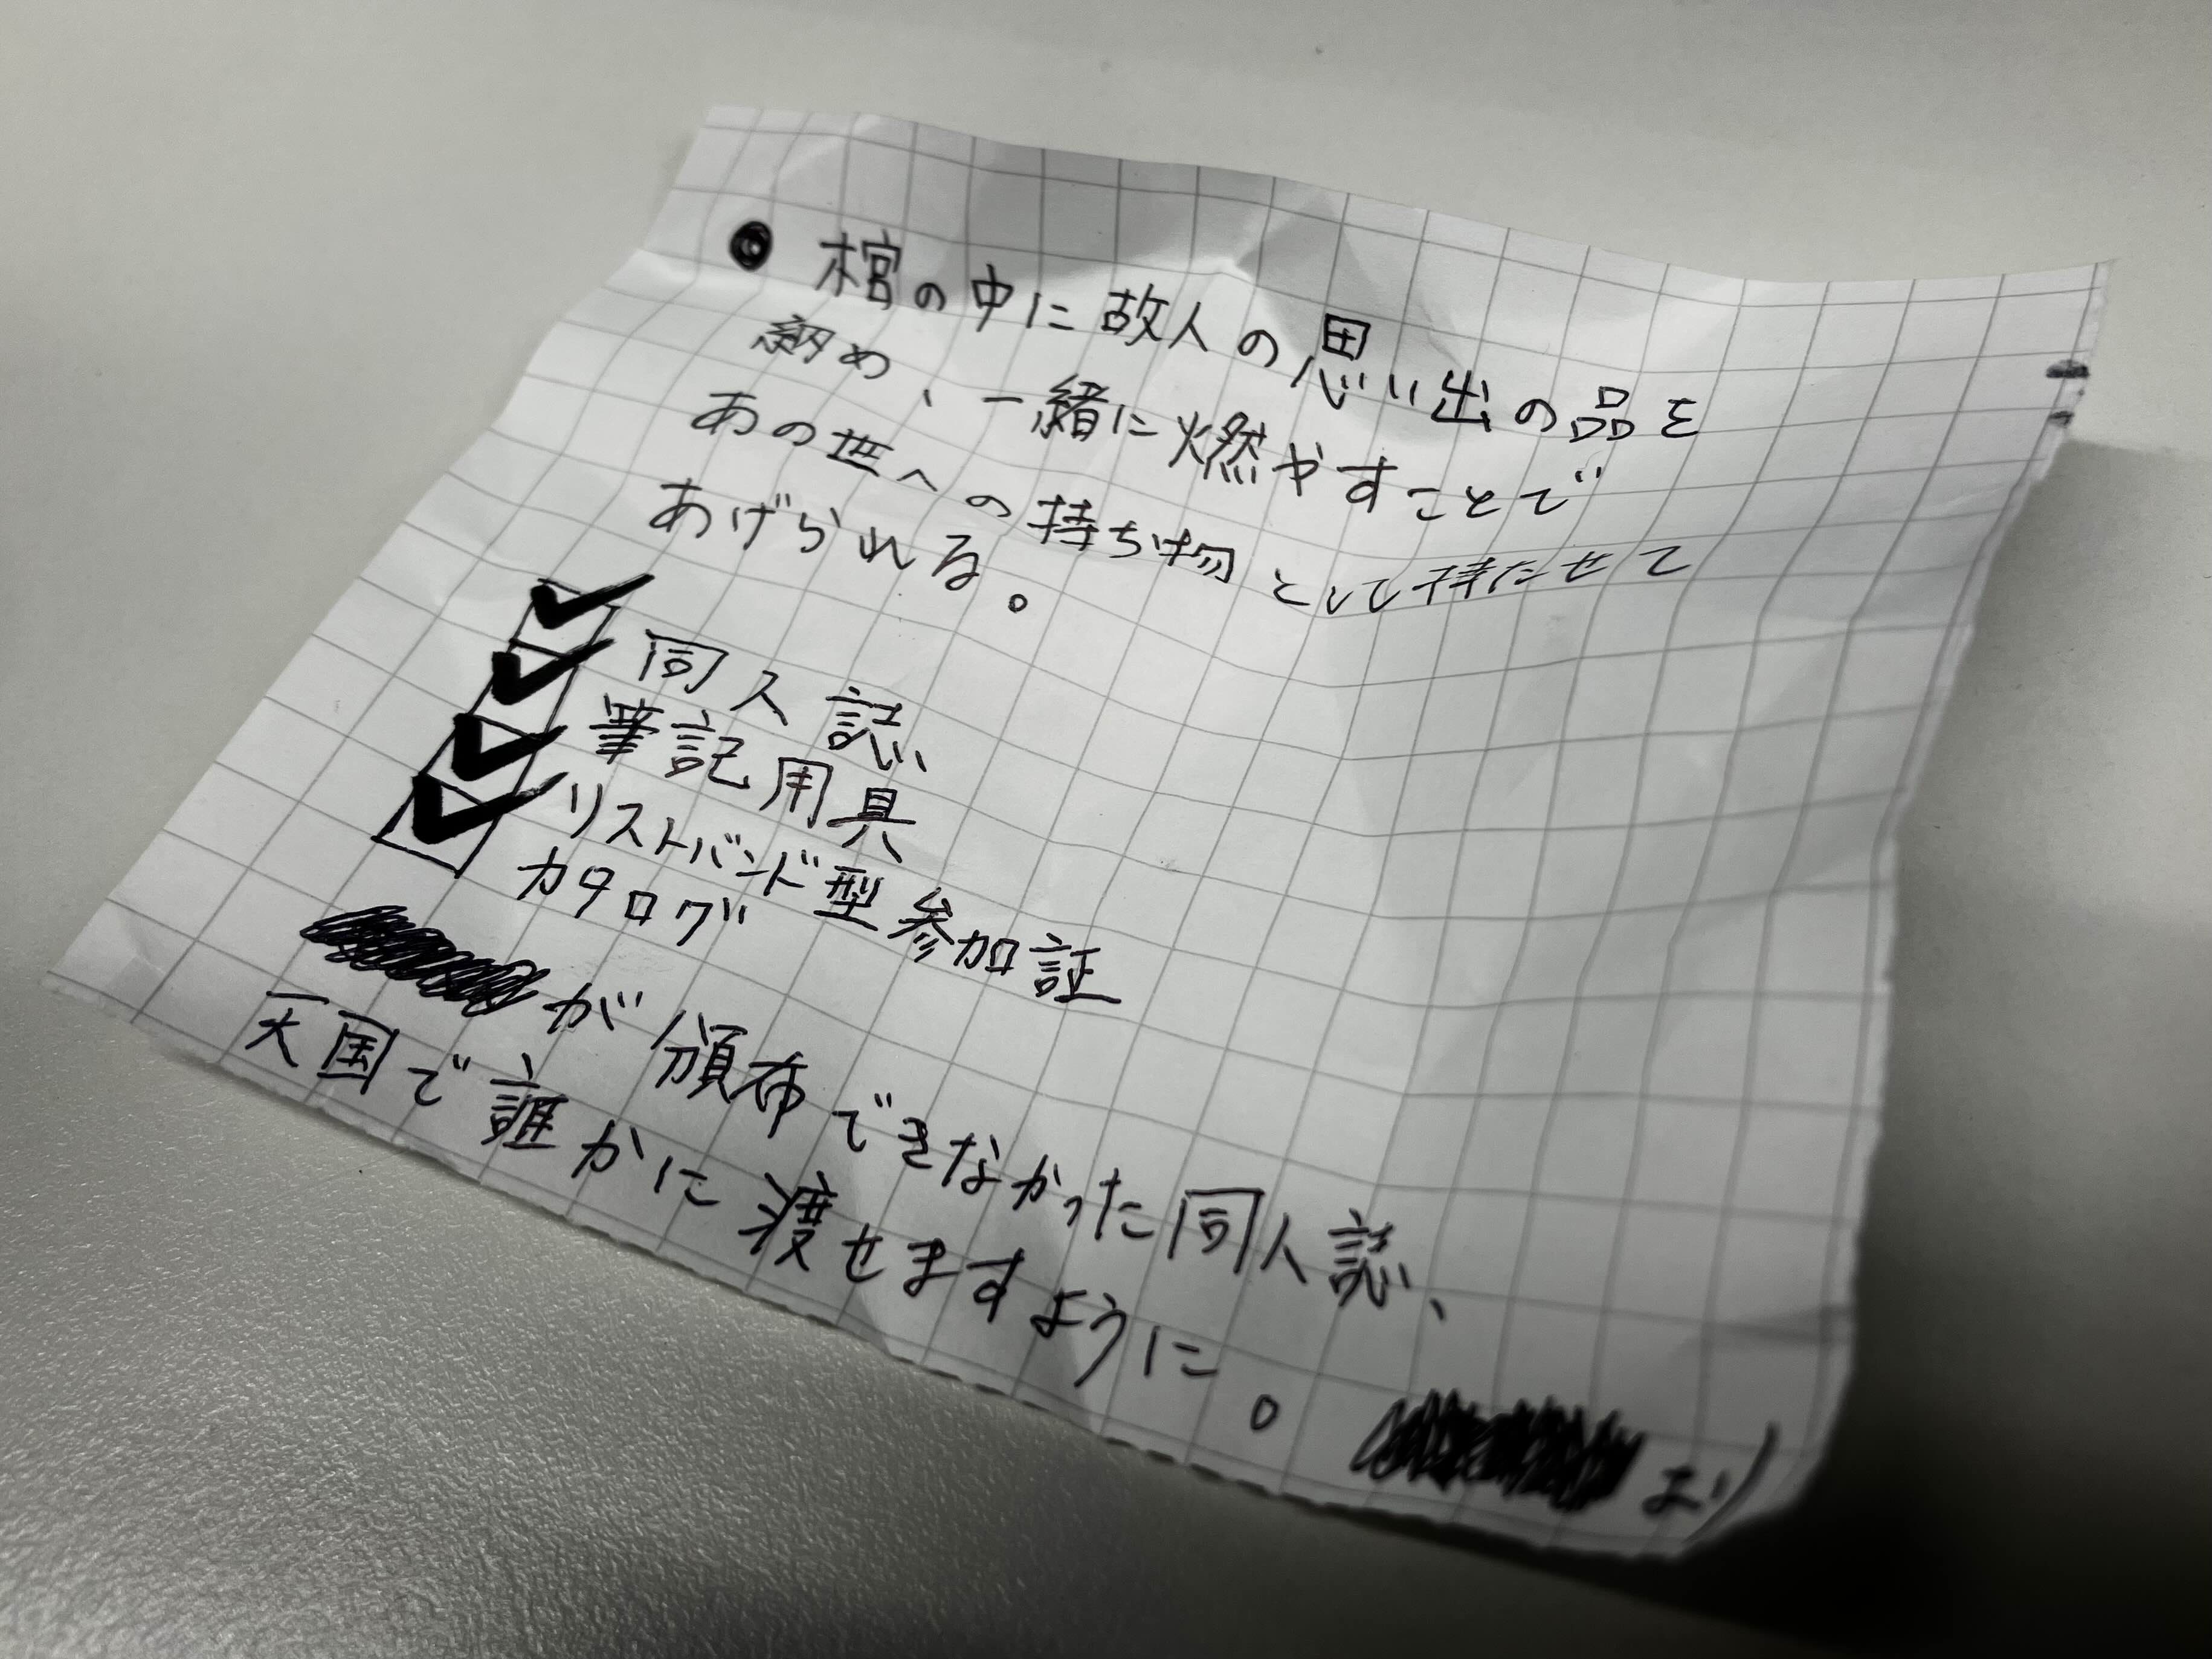 ● 棺の中に故人の思い出の品を
納め、一緒に燃やすことで
あの世への持ち物として持たせて
あげられる。
同人誌
筆記用具
リストバンド型参加証
カタログ
が頒布できなかった同人誌、
天国で誰かに渡せますように。
より